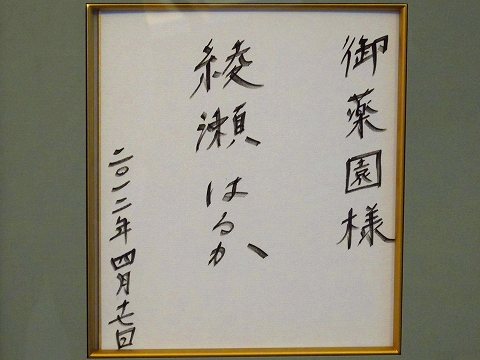 御薬園様
綾瀬はるか
二〇一二年四月十七日